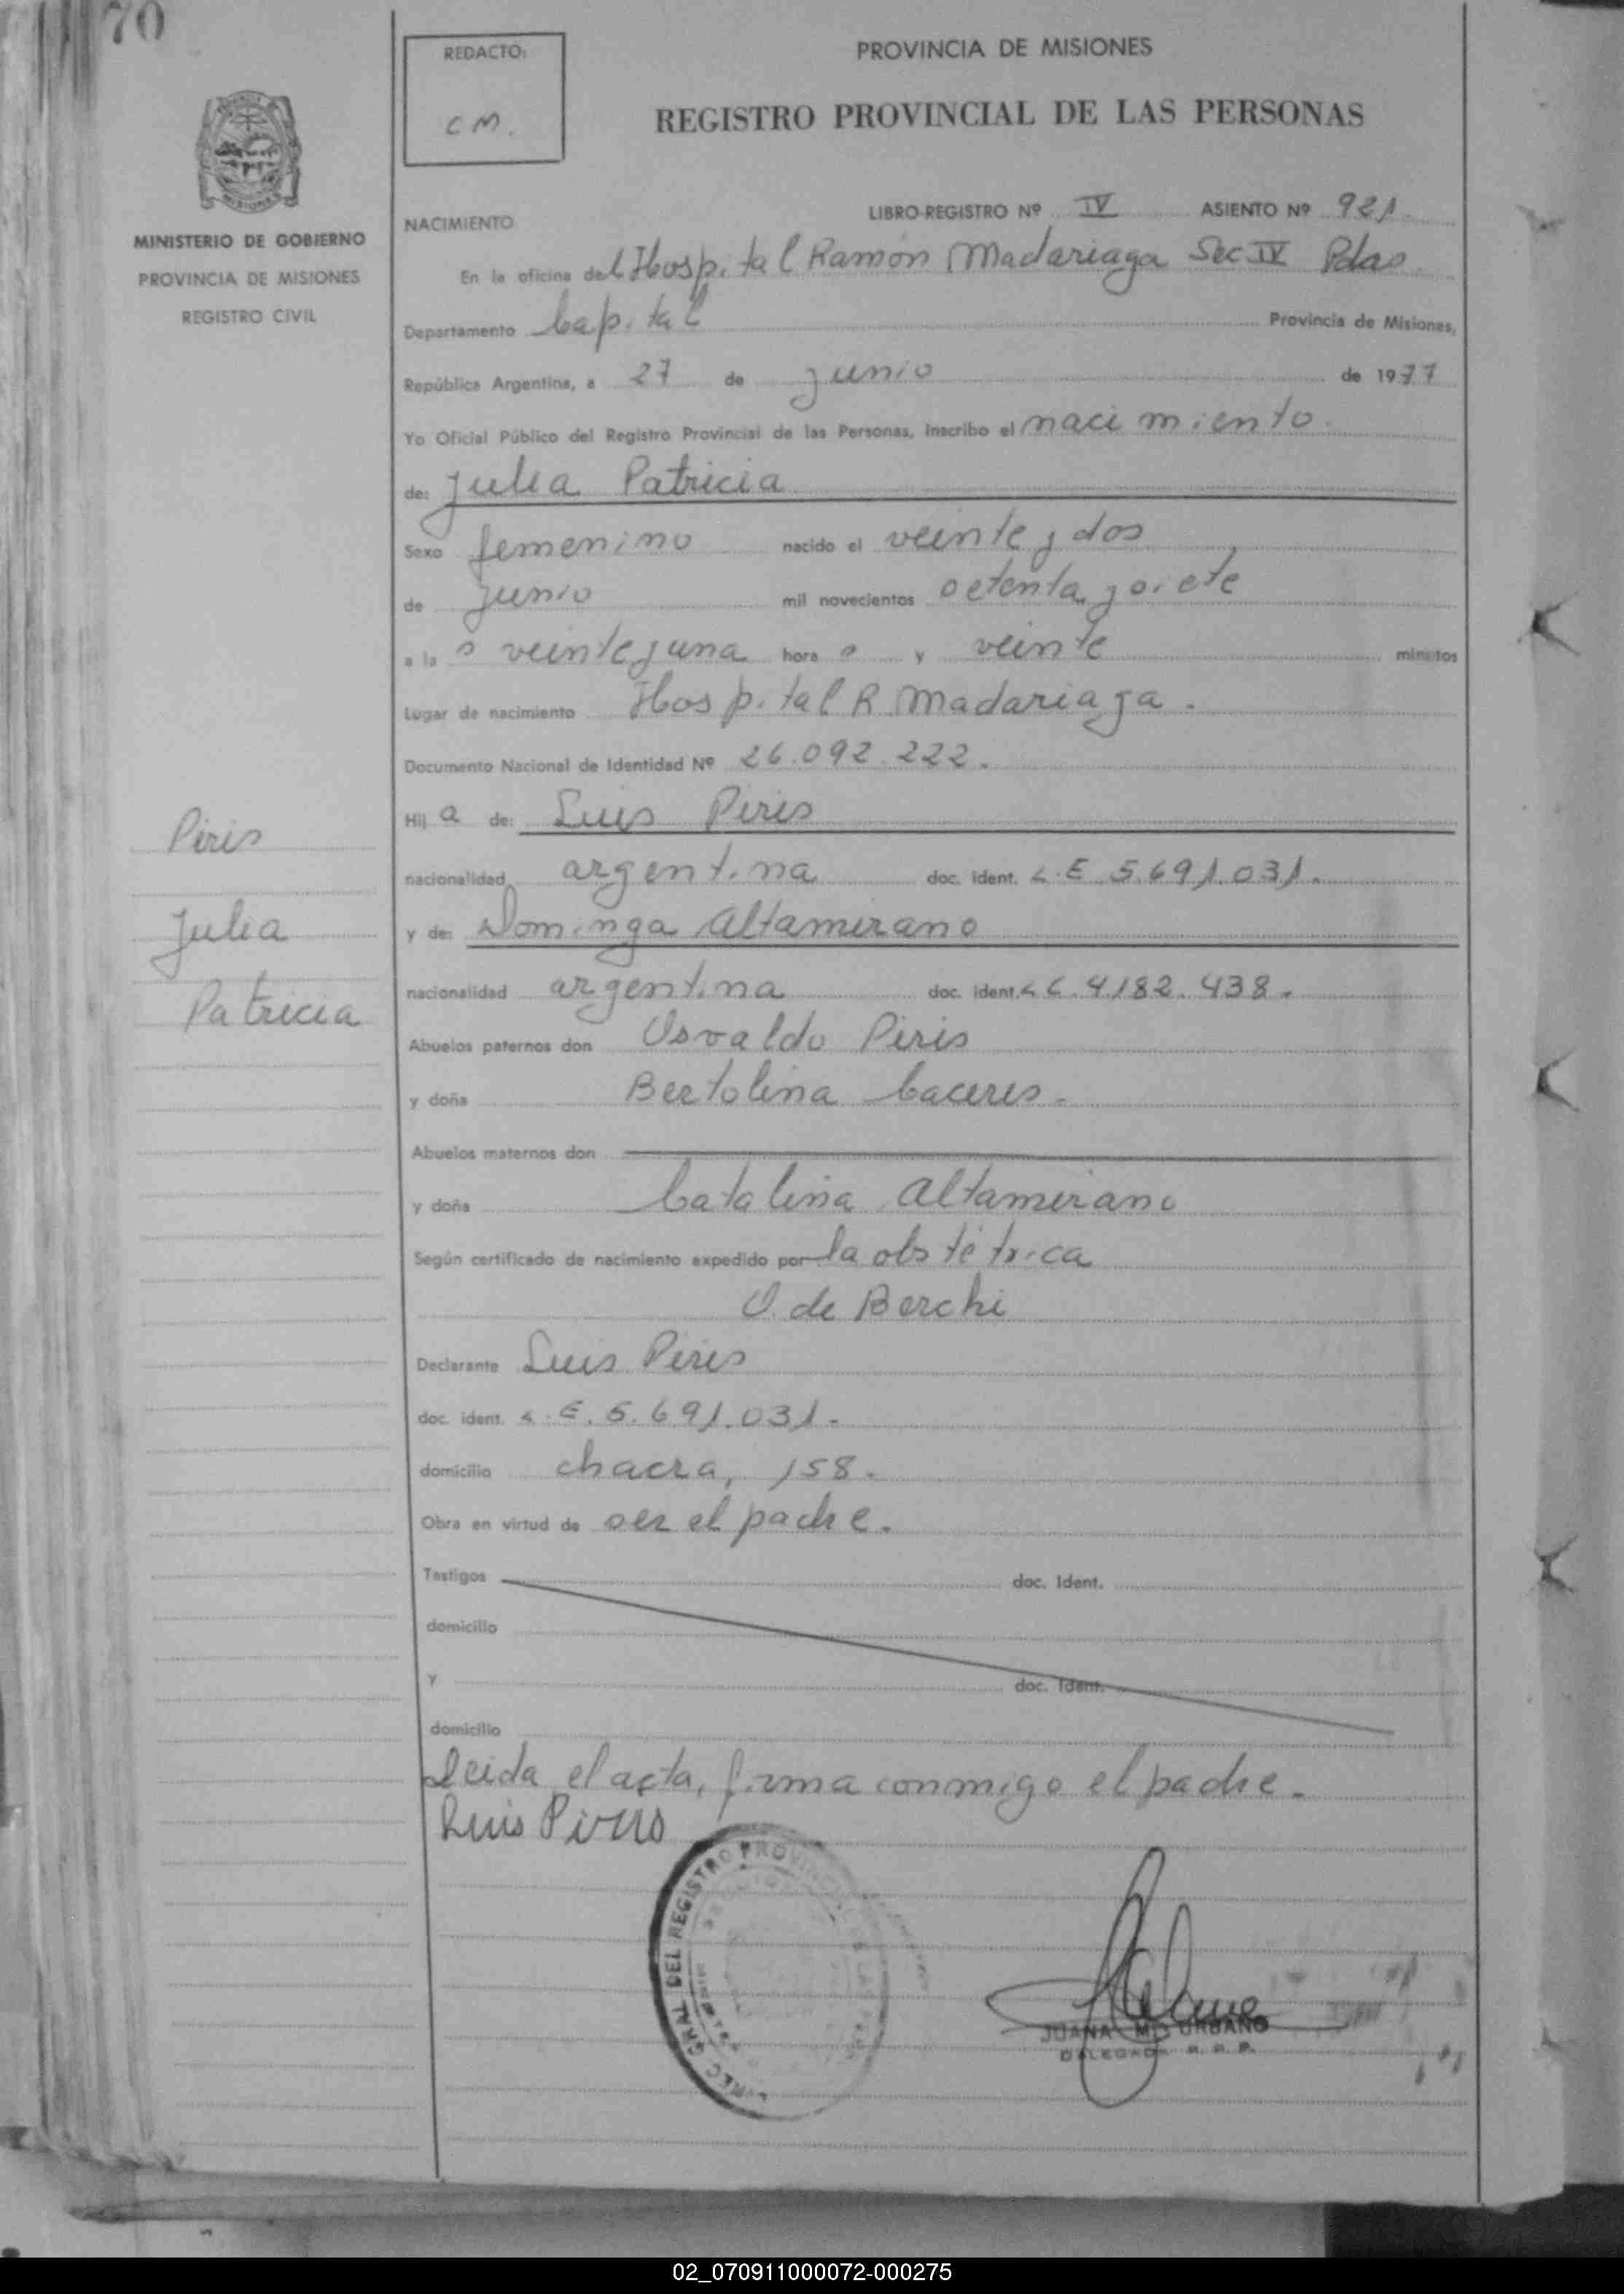 70
REDACTÓ:
C M.
PROVINCIA DE MISIONES
REGISTRO PROVINCIAL DE LAS PERSONAS
MINISTERIO DE GOBIERNO
PROVINCIA DE MISIONES
REGISTRO CIVIL
LIBRO-REGISTRO Nº IV ASIENTO Nº 921.
NACIMIENTO
En la oficina del Hospital Ramón Madariaga Sec IV Pdas
Departamento Capital Provincia de Misiones,
República Argentina, a 27 de junio de 1977
Yo Oficial Público del Registro Provincial de las Personas, inscribo el nacimiento.
de: Julia Patricia
Sexo femenino nacido el veinte y dos
de junio mil novecientos setenta y siete
a la s veinte y una hora s y veinte minutos
Lugar de nacimiento Hospital R Madariaga.
Documento Nacional de Identidad Nº 26.092.222.
Hij a de: Luis Piris
nacionalidad argentina doc. ident. L.E 5.691.031.
y de: Dominga Altamirano
nacionalidad argentina doc. ident. L C. 4182.438.
Abuelos paternos don Osvaldo Piris
y doña Bertolina Caceres.
Abuelos maternos don
y doña Catalina Altamirano
Según certificado de nacimiento expedido por la obstétrica
O. de Berchi
Declarante Luis Piris
doc. ident. L.E. 5.691.031.
domicilio chacra, 158.
Obra en virtud de ser el padre.
Testigos doc. Ident.
domicilio
y doc. Ident.
domicilio
Leida el acta, firma conmigo el padre.
Luis Piris
Piris
Julia
Patricia
GRAL DEL REGISTRO PROVINCIAL
JUANA M. URBANO
DELEGADA R. P. P.
02_070911000072-000275